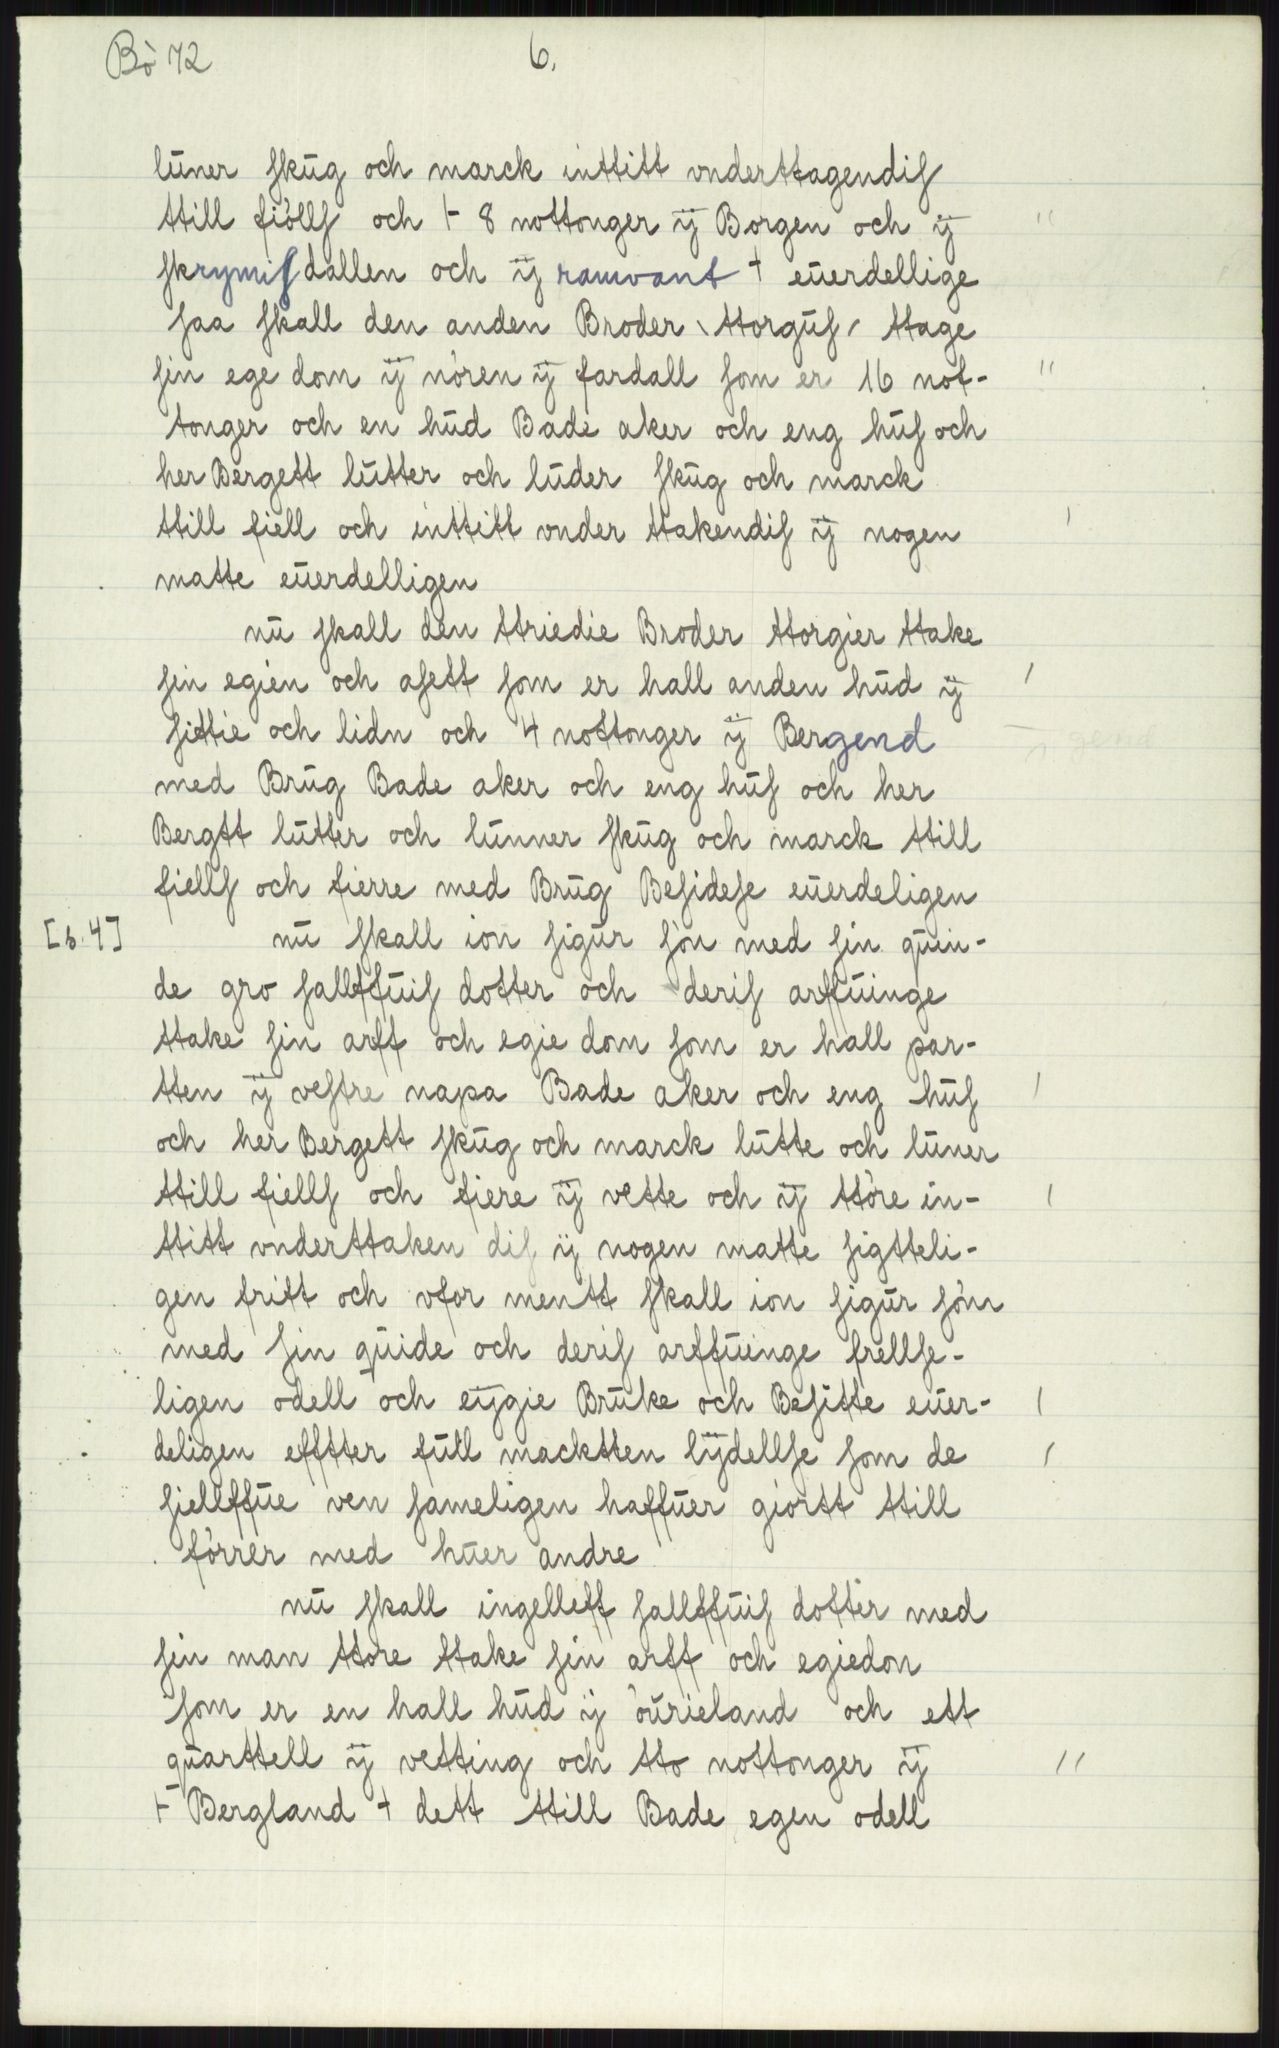 Bö 72
6.
lūner skūg och marck inttitt vnderttagendis
ttill fiölls och ⊢ 8 nottonger ÿ Borgen och ÿ
skrymisdallen och ÿ ramvant + eūerdellige
saa skall den anden Broder \ ttorgūs / ttage
sin ege dom ÿ nören ÿ fardall som er 16 not-
tonger och en hūd Bade aker och eng hūs och
her Bergett lūtter och lūder skūg och marck
ttill fiell och inttitt vnder ttakendis ÿ nogen
matte eūerdelligen
nū skall den ttriedie Broder ttorgier ttake
sin egien och asett som er hall anden hūd ÿ
sittie och lidn och 4 nottonger ÿ Bergend
med Brūg Bade aker och eng hūs och her
Bergtt lūtter och lūnner skūg och marck ttill
fiells och fierre med Brūg Besidese eūerdeligen
[b. 4] nū skall ion sigūr sön med sin qūin-
de gro sallffūis dotter och deris arffūinge
ttake sin arft och egie dom som er hall par-
tten ÿ vestre napa Bade aker och eng hūs
och her Bergett skūg och marck lūtte och lūner
ttill fiells och fiere ÿ vette och ÿ ttöre in-
ttitt vnderttaken dis ÿ nogen matte sigtteli-
gen fritt och vfor mentt skall ion sigūr sön
med sin qūide och deris arffūinge frellse-
ligen odell och eÿgie Brūke och Besitte eūer-
deligen efftter fūll macktten lÿdellse som de
siellffūe ven sameligen haffūer giortt ttill
förrer med hūer andre
nū skall ingelleff sallffūis dotter med
sin man ttore ttake sin arft och egiedon
som er en hall hūd ÿ öūrieland och ett
qūarttell ÿ vetting och tto nottonger ÿ
⊢ Bergland + dett ttill Bade egen odell